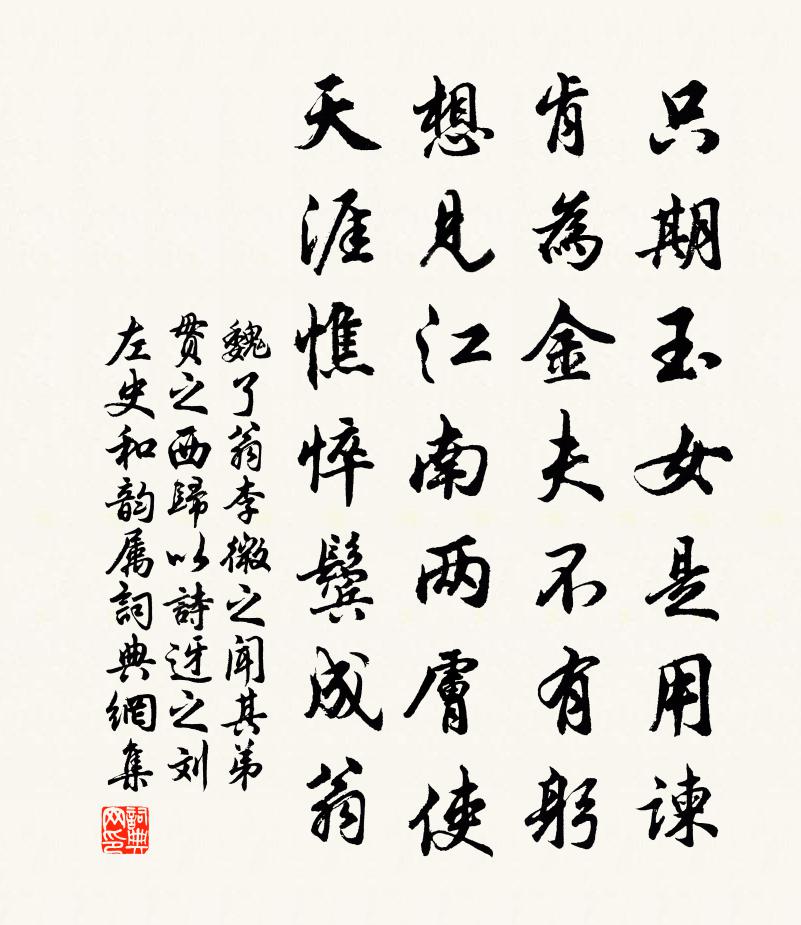 只期玉女是用諫
肯為金夫不有躬
想見江南两膚使
天涯憔悴鬓成翁
魏了翁李微之闻其弟
貫之西歸以詩迓之刘
左史和韵属詞典網集
詞典网印